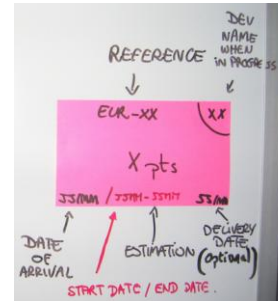 DEV
NAME
WHEN
IN PROGRESS
REFERENCE
EUR-XX
XX
X pts
JJ/MM / JJ/MM - JJ/MM
JJ/MM
DATE
OF
ARRIVAL
ESTIMATION
DELIVERY
DATE
(optional)
START DATE / END DATE.